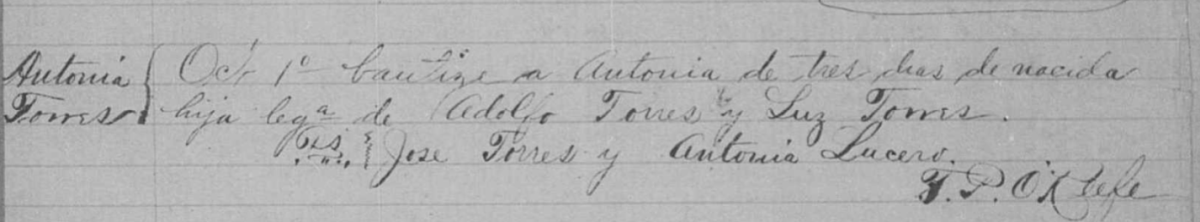 Antonia { Octr 1o bautize a Antonia de tres dias de nacida
Torres hija lega de Adolfo Torres y Luz Torres.
Jose Torres y Antonia Lucero.
T. P. O'Keefe